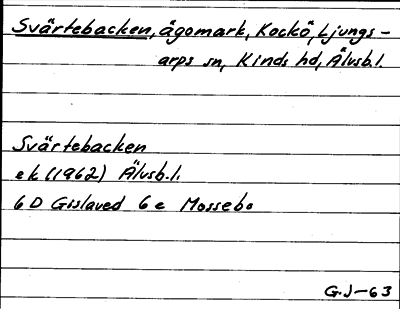 Svärtebacken, ägomark, Kockö, Ljungs-
arps sn, Kinds hd, Älvsb.l.
Svärtebacken
ek (1962) Älvsb.l.
6 D Gislaved 6 e Mossebo
G.J-63